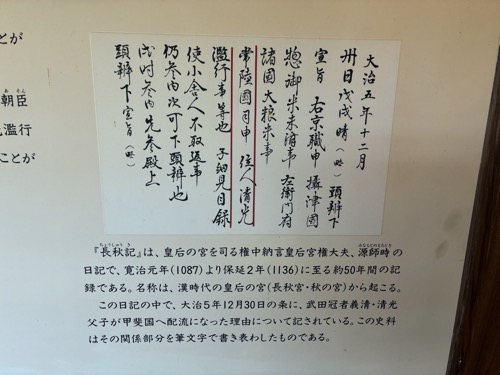 とが
朝臣
あそん
濫行
ことが
大治五年十二月
卅日戊戌晴（略）頭辨下
宣旨 右京職申 攝津國
惣御米未済事 左衛門府
諸國大粮米事
常陸國司申 住人清光
濫行事等也 子細見目録
使小舎人不取返事
仍参内次可下頭辨也
戌时参内先参殿上
頭辨下宣旨（略）
『長秋記』は、皇后の宮を司る権中納言皇后宮権大夫、源師時の
ちょうしゅうき
みなもとのもろとき
日記で、寛治元年(1087)より保延2年(1136)に至る約50年間の記
録である。名称は、漢時代の皇后の宮(長秋宮・秋の宮)から起こる。
この日記の中で、大治5年12月30日の条に、武田冠者義清・清光
父子が甲斐国へ配流になった理由について記されている。この史料
はその関係部分を筆文字で書き表わしたものである。